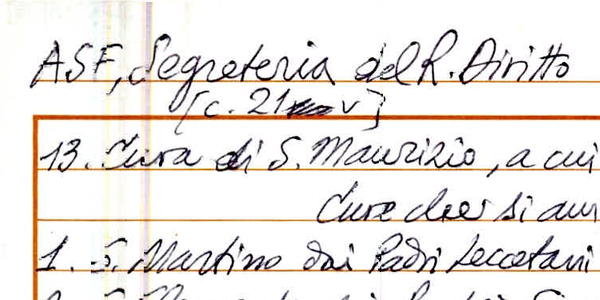 ASF, Segreteria del R. Diritto
[c. 21 v]
13. Cura di S. Maurizio, a cui
Cure che si
1. S. Martino dai Padri Leccetani